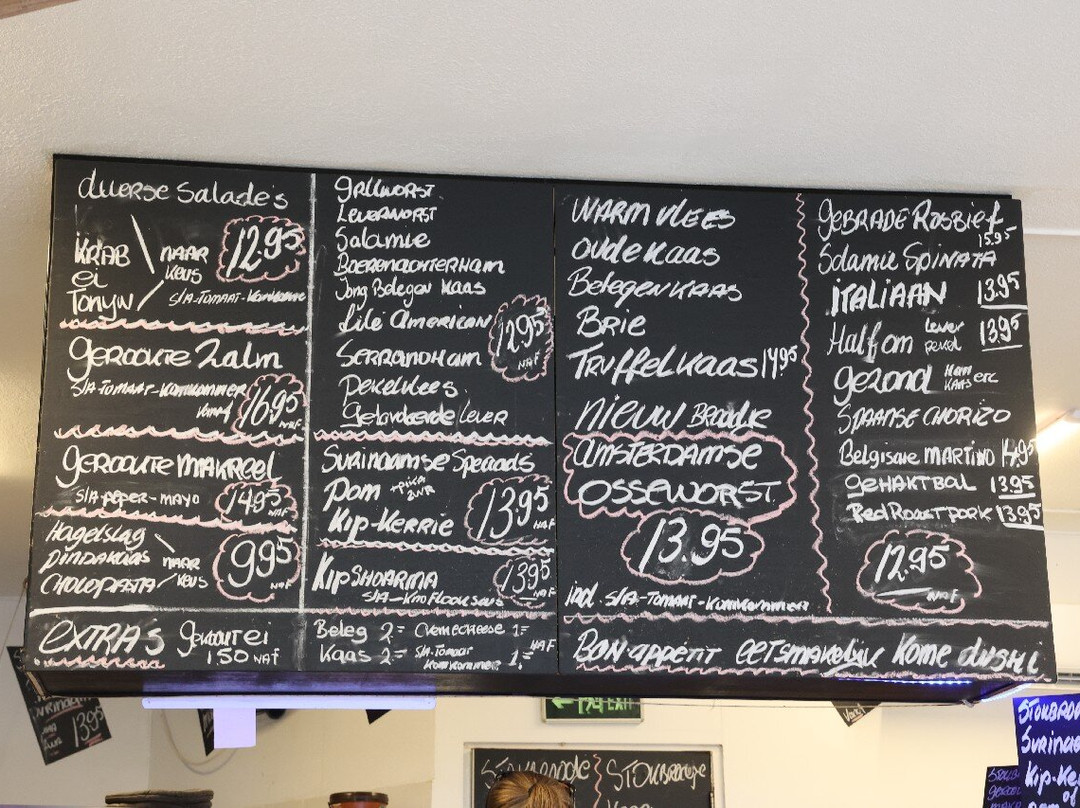 diverse salade's
Krab
ei
Tonyn
naar
keus
12.95
sla-Tomaat-Komkommer
gerookte Zalm
sla-Tomaat-Komkommer
16.95
NAF
gerookte makreel
sla-peper-mayo
14.95
NAF
Hagelslag
Pindakaas
Chocopasta
naar
keus
9.95
NAF
Extra's gekookt ei
1.50 NAF
grillworst
Leverworst
Salamie
Boerenachterham
Jong Belegen Kaas
Filé American
12.95
NAF
Serranoham
Pekelvlees
Gebraden Lever
Surinaamse Speciaals
Pom
Kip-Kerrie
13.95
NAF
Kip Shoarma
13.95
NAF
sla-Knoflooksaus
Beleg 2= Cremecheese 1=
Kaas 2= sla-Tomaat
Komkommer 1=
NAF
Warm vlees
Oude Kaas
Belegen Kaas
Brie
Truffelkaas 14.95
nieuw Broodje
Amsterdamse
Ossenworst
13.95
incl. sla-Tomaat-Komkommer
gebrade Rosbief
15.95
Solamie Spinata
Italiaan 13.95
Half om Lever
pekel 13.95
gezond Ham
Kaas etc
Spaanse chorizo
Belgische Martino 14.95
gehaktbal 13.95
Red Roast pork 13.95
12.95
NAF
Bon-appetit eetsmakelijk Kome dushi
13.95
EXIT
Stokbroodje
Stokbroodje
Stokbroo
Surina
Kip-Ke